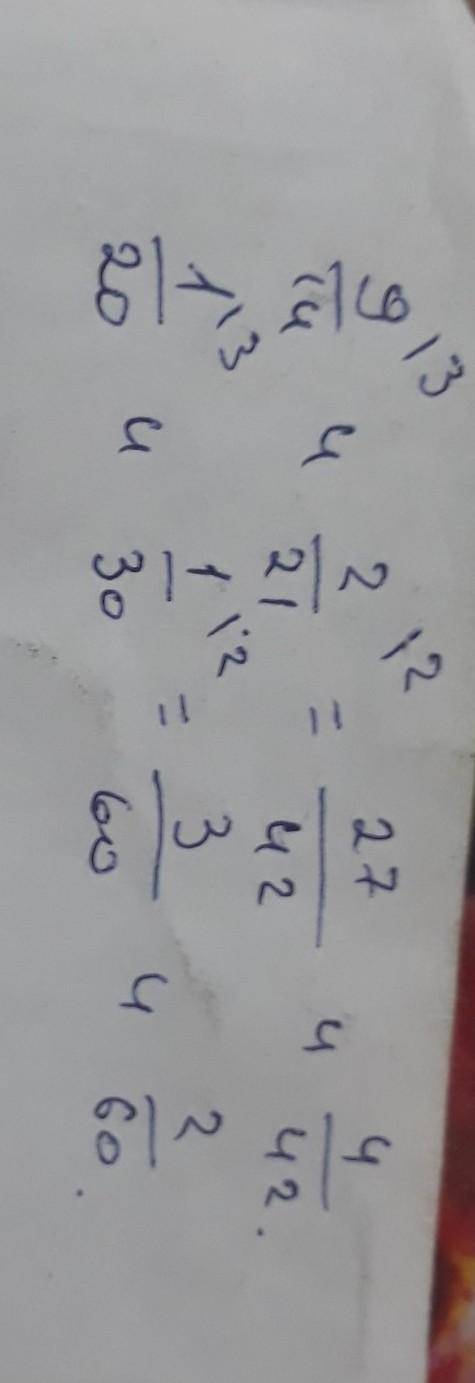 9/14 \3 и 2/21 \2 = 27/42 и 4/42.
1/20 \3 и 1/30 \2 = 3/60 и 2/60.